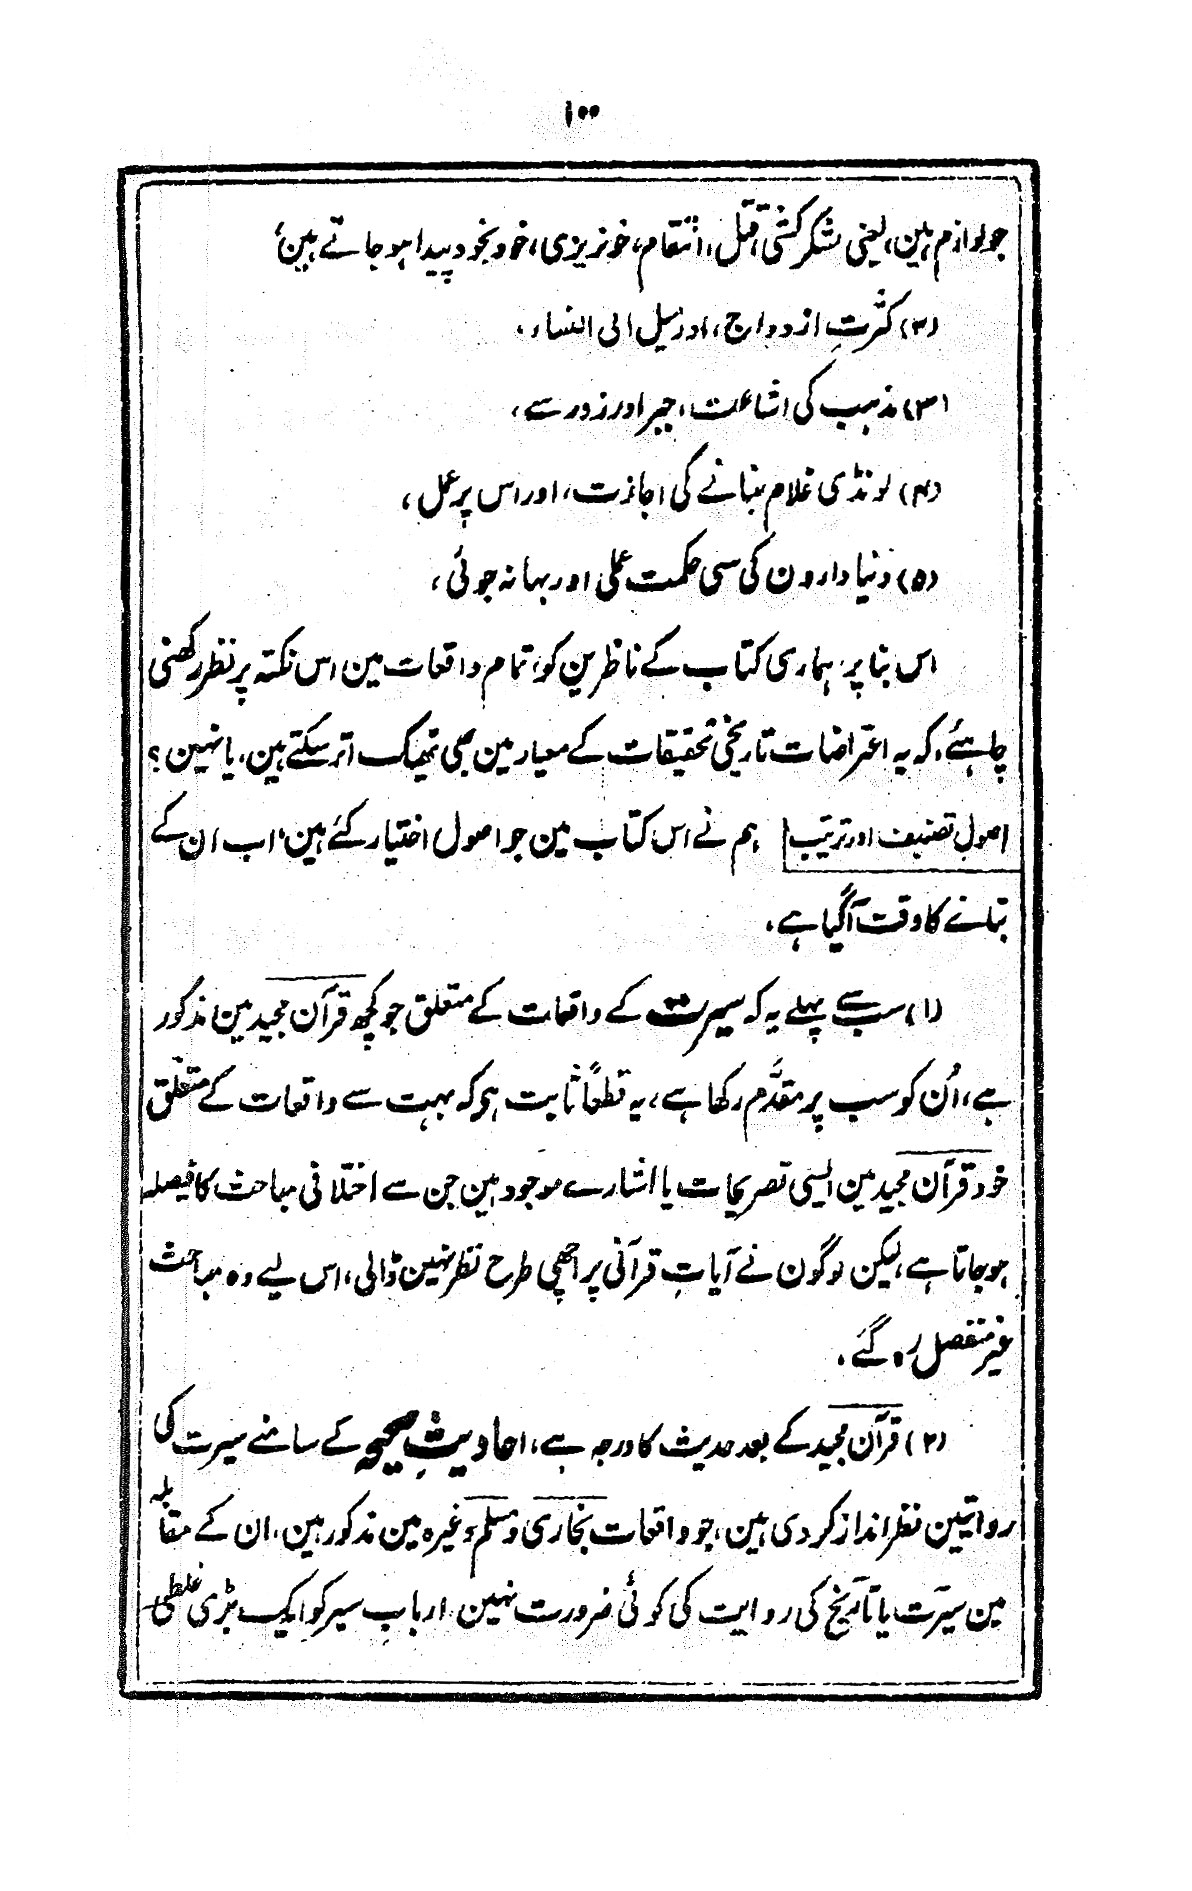 ۱۰۰
جو لوازم ہین، یعنی لشکر کشی، قتل، انتقام، خونریزی، خود بخود پیدا ہو جاتے ہین،
(۲) کثرتِ ازدواج، اور میل الی النساء،
(۳) مذہب کی اشاعت، جبر اور زور سے،
(۴) لونڈی غلام بنانے کی اجازت، اور اس پر عمل،
(۵) دنیا دارون کی سی حکمت عملی اور بہانہ جوئی،
اس بنا پر، ہماری کتاب کے ناظرین کو، تمام واقعات مین اس نکتہ پر نظر رکھنی
چاہئے، کہ یہ اعتراضات تاریخی تحقیقات کے معیار مین بھی ٹھیک اتر سکتے ہین، یا نہین؟
اصولِ تصنیف اور ترتیب ہم نے اس کتاب مین جو اصول اختیار کئے ہین، اب ان کے
بتانے کا وقت آگیا ہے،
(۱) سب سے پہلے یہ کہ سیرت کے واقعات کے متعلق جو کچھ قرآن مجید مین مذکور
ہے، اُن کو سب پر مقدَّم رکھا ہے، یہ قطعاً ثابت ہی کہ بہت سے واقعات کے متعلّق
خود قرآن مجید مین ایسی تصریحات یا اشارے موجود ہین جن سے اختلافی مباحث کا فیصلہ
ہو جاتا ہے، لیکن لوگون نے آیاتِ قرآنی پر اچھی طرح نظر نہین ڈالی، اس لیے وہ مباحث
غیر منفصل رہ گئے،
(۲) قرآن مجید کے بعد حدیث کا درجہ ہے، احادیثِ صحیحہ کے سامنے سیرت کی
روایتین نظر انداز کر دی ہین، جو واقعات بخاری و مسلم وغیرہ مین مذکور ہین، ان کے مقابلہ
مین سیرت یا تاریخ کی روایت کی کوئی ضرورت نہین، ارباب سیر کو ایک بڑی غلطی